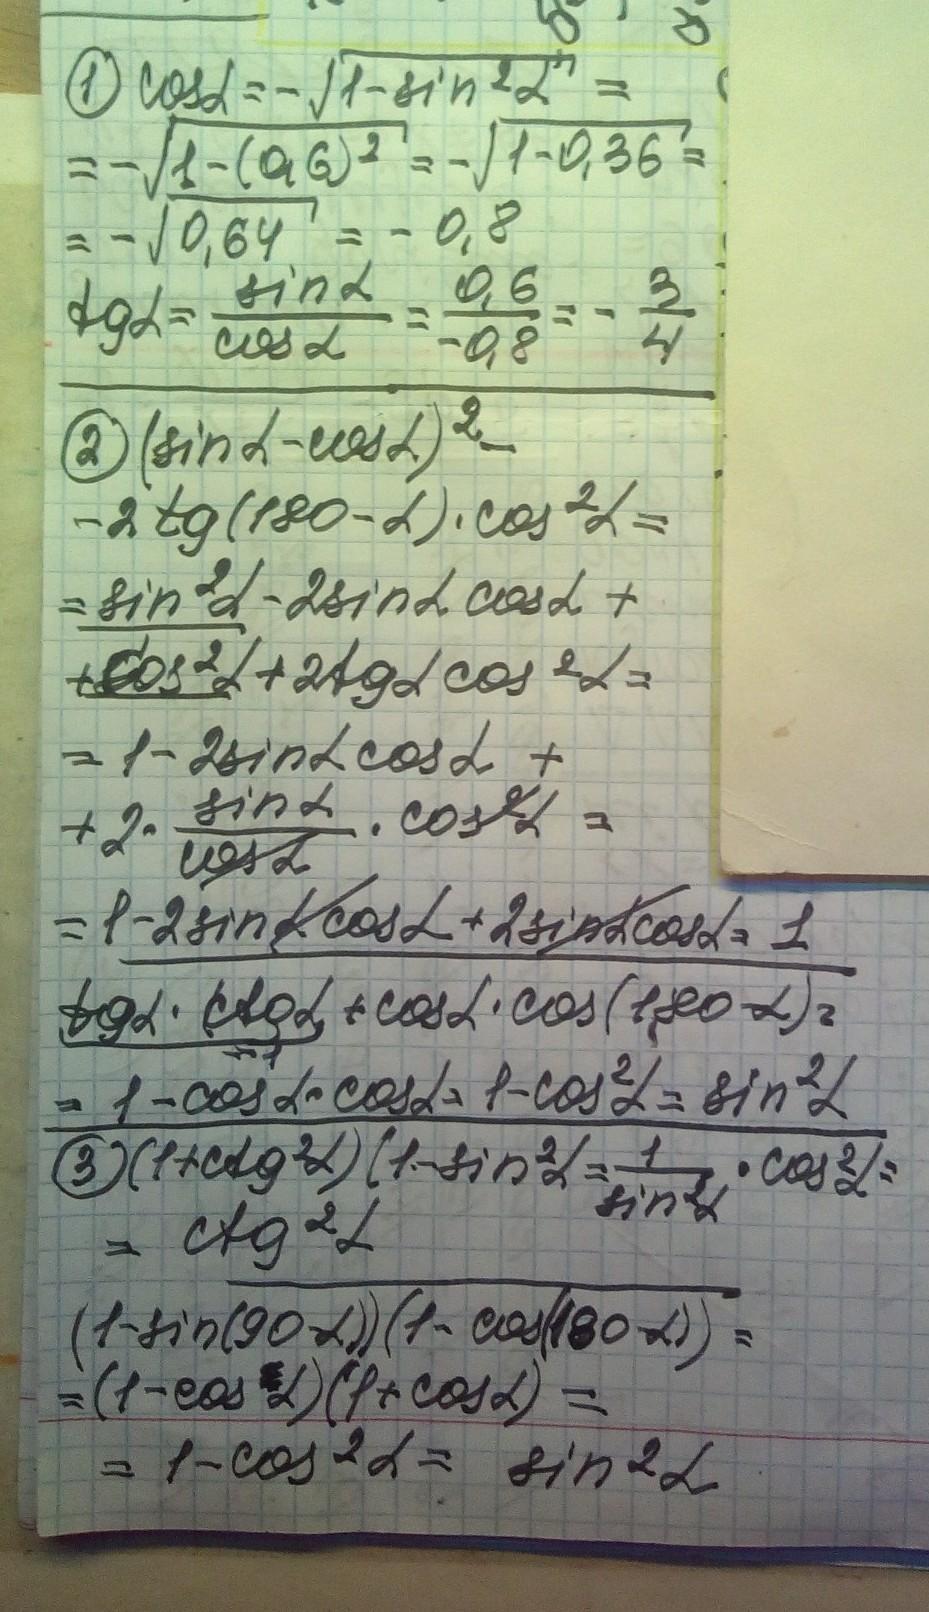 ① cosα = -√(1-sin²α) =
= -√(1-(0,6)²) = -√(1-0,36) =
= -√0,64 = - 0,8
tgα = sinα/cosα = 0,6/-0,8 = - 3/4
② (sinα-cosα)² -
- 2tg(180-α)·cos²α =
= sin²α - 2sinα cosα +
+ cos²α + 2tgα cos²α =
= 1 - 2sinα cosα +
+ 2· sinα/cosα · cos²α =
= 1 - 2sinα cosα + 2sinα cosα = 1
tgα · ctgα + cosα · cos(180-α) =
= 1
= 1 - cosα · cosα = 1 - cos²α = sin²α
③ (1+ctg²α)(1-sin²α = 1/sin²α · cos²α =
= ctg²α
(1-sin(90-α))(1-cos(180-α)) =
= (1-cosα)(1+cosα) =
= 1-cos²α = sin²α